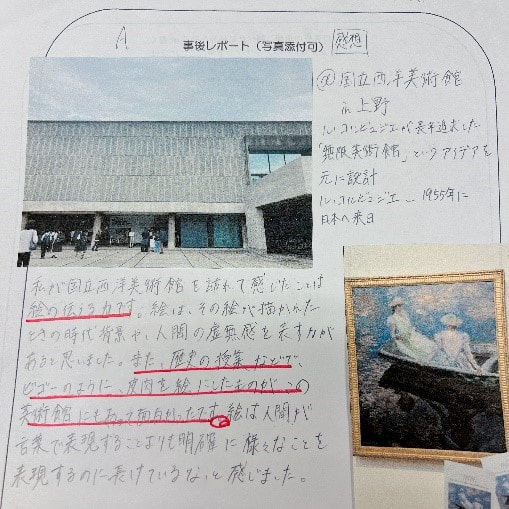 A
事後レポート（写真添付可） 感想
@国立西洋美術館
in 上野
ル・コルビュジエが長年追求した
「無限美術館」というアイデアを
元に設計
ル・コルビュジエ … 1955年に
日本へ来日
私が国立西洋美術館を訪れて感じたことは
絵の伝える力です。絵は、その絵が描かれた
ときの時代背景や、人間の虚無感を表す力が
あると思いました。また、歴史の授業などで、
ビゴーのように、皮肉を絵にしたものがこの
美術館にもあって面白かったです。絵は人間が
言葉で表現することよりも明確に様々なことを
表現するのに長けているな、と感じました。